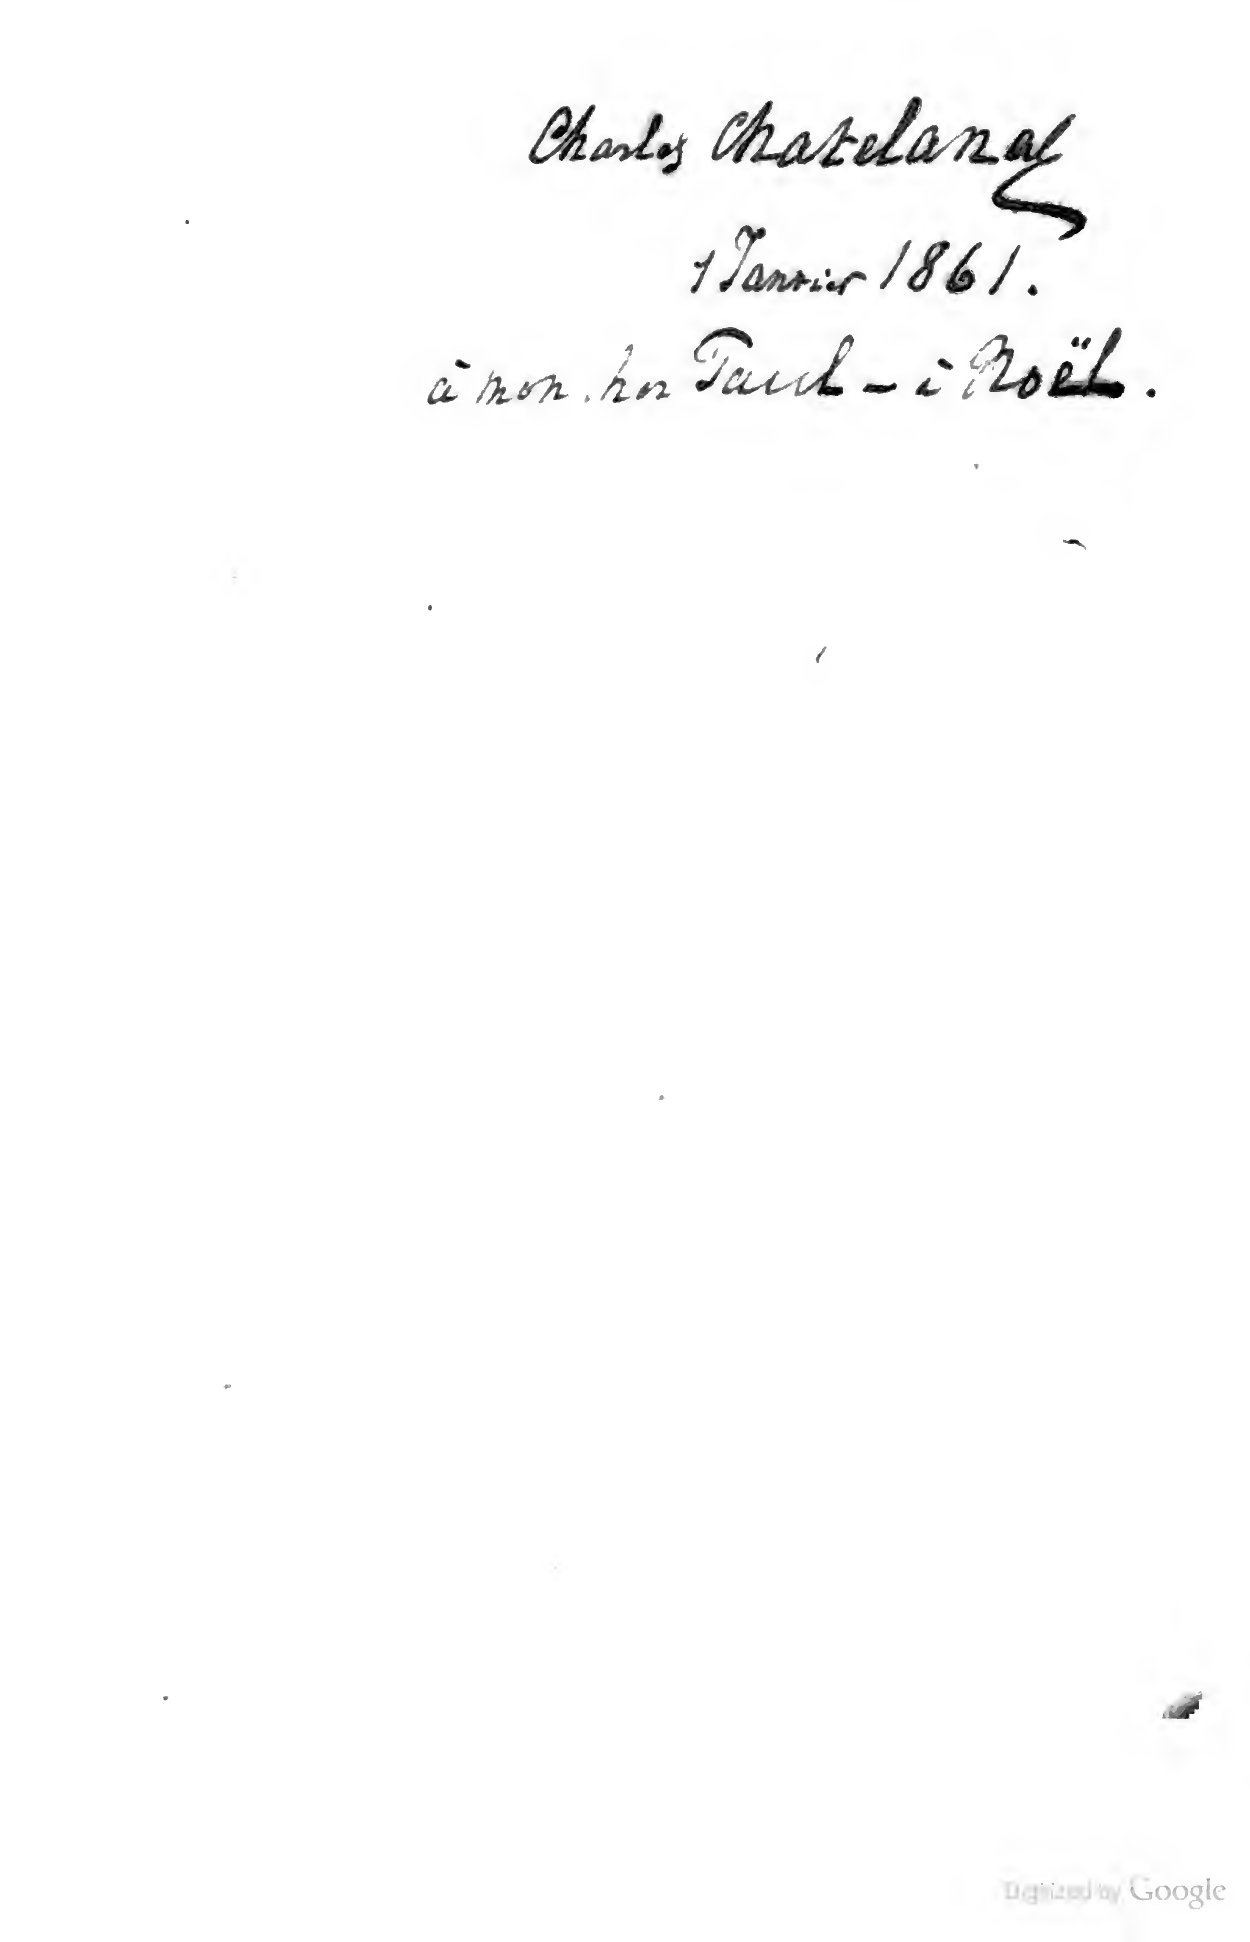 Charles Chatelanat
1 Janvier 1861.
à mon Paul - à Noël.
Digitized by Google